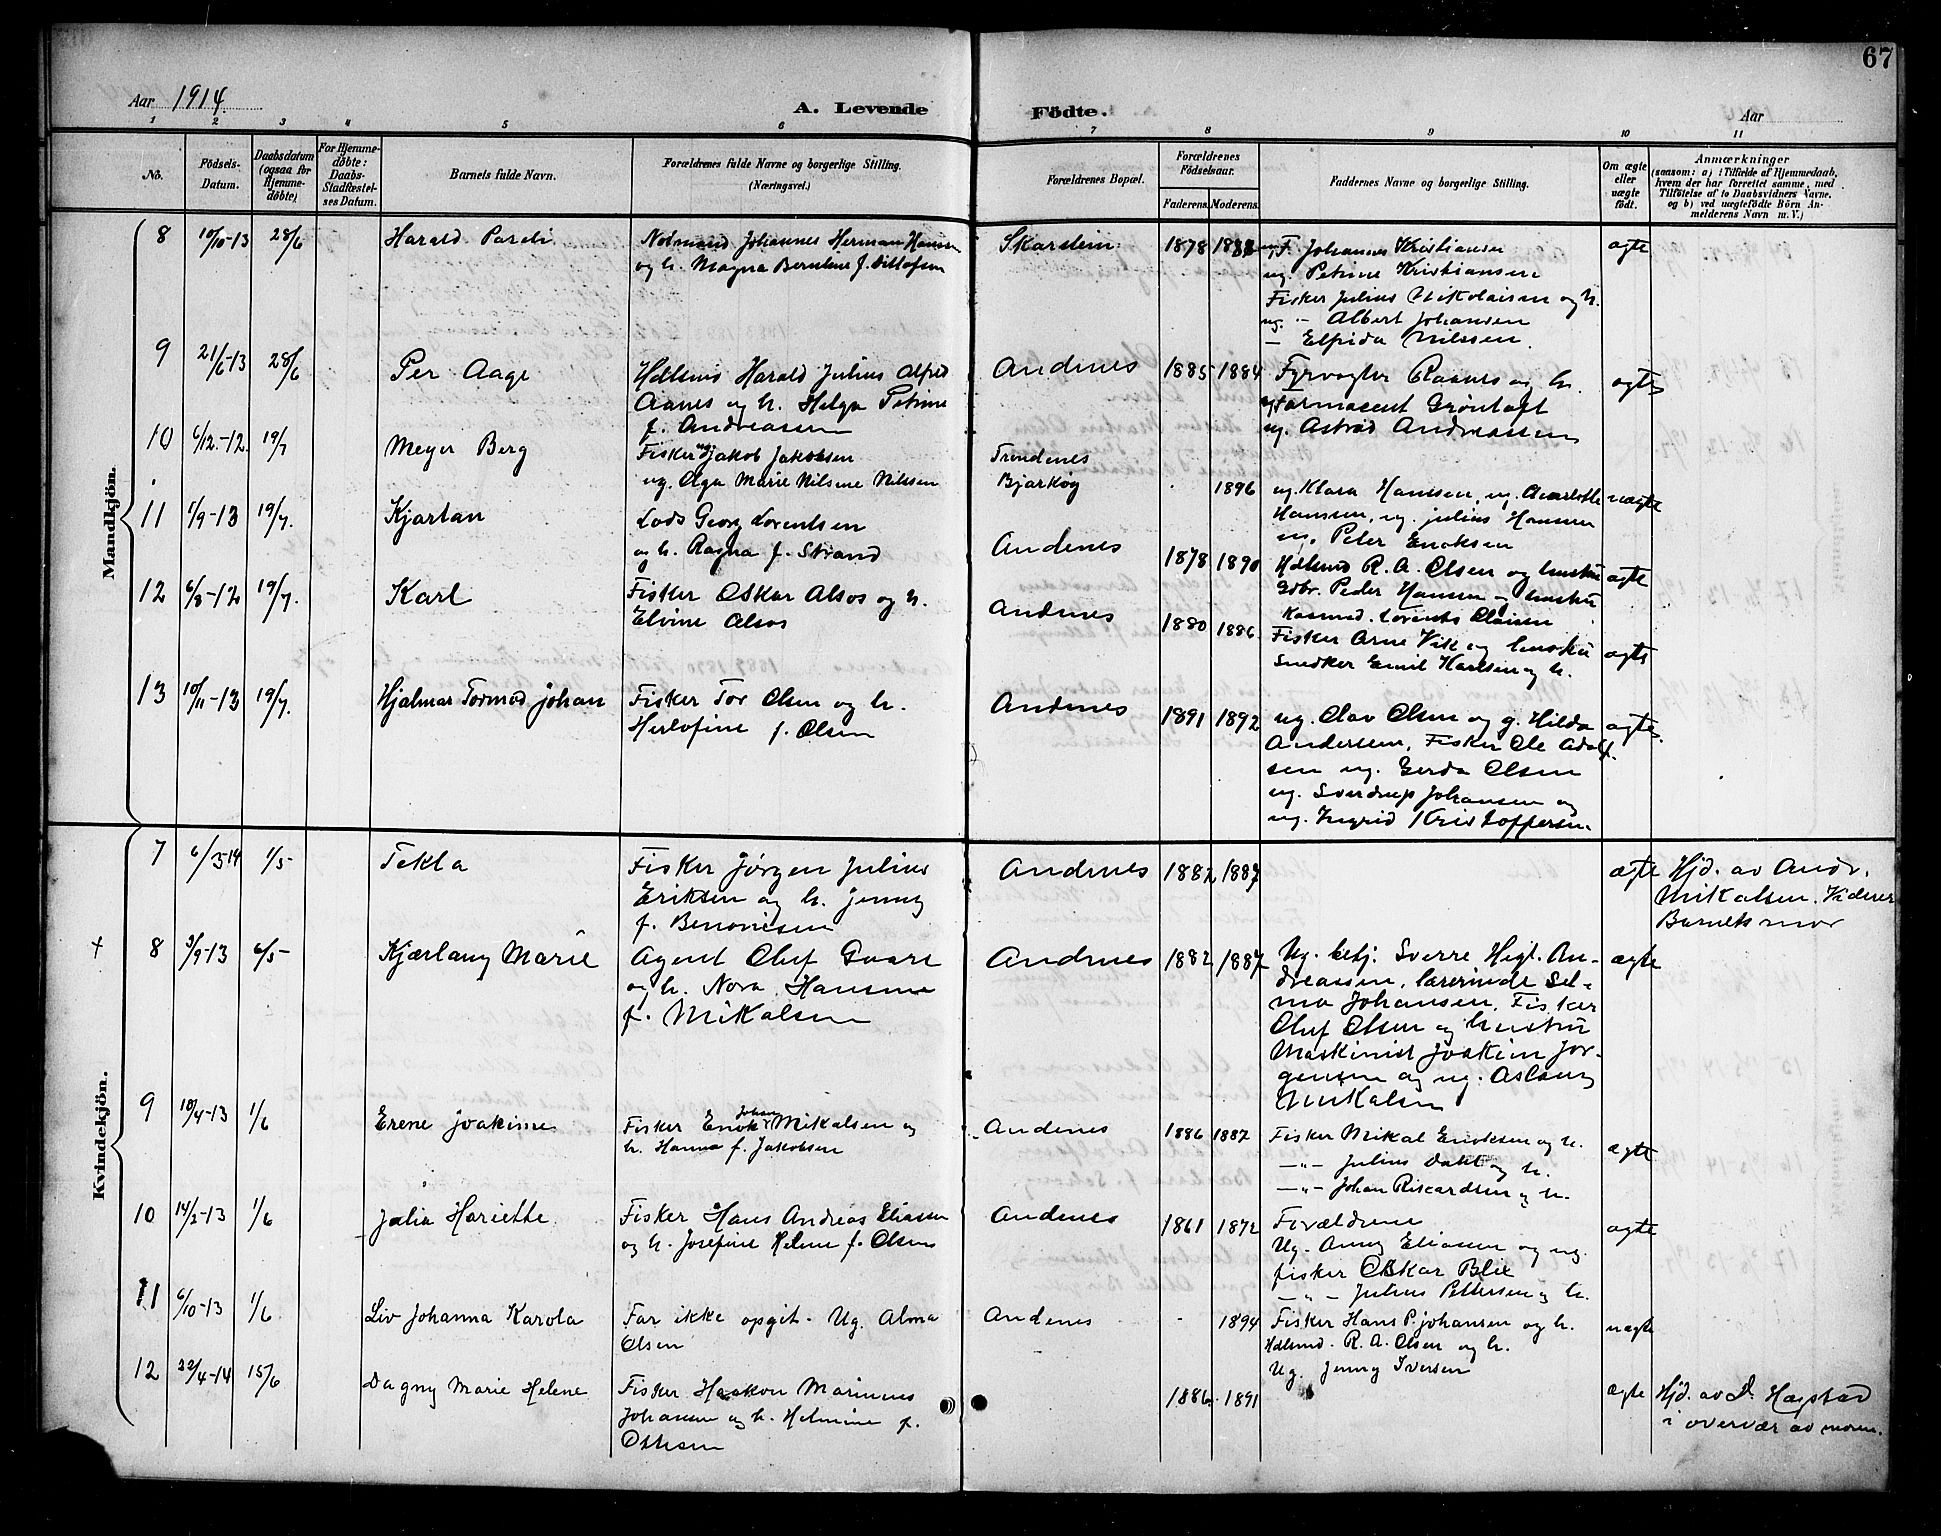 67
Aar 1914.
A. Levende Födte.
Aar
1 2 3 4 5 6 7 8 9 10 11
No.
Födsels-Datum.
Daabsdatum (ogsaa for Hjemmedöbte)
For Hjemmedöbte: Daabs-Stadfæstelses Datum.
Barnets fulde Navn.
Forældrenes fulde Navne og borgerlige Stilling. (Næringsvei.)
Forældrenes Bopæl.
Forældrenes Födselsaar.
Faderens. Moderens.
Faddernes Navne og borgerlige Stilling.
Om ægte eller uægte födt.
Anmærkninger
(saasom: a) i Tilfælde af Hjemmedaab, hvem der har forrettet samme, med Tilföielse af to Daabsvidners Navne, og b) ved uægtefödte Börn Anmelderens Navn m. V.)
Mandkjön.
8 10/10-13 28/6 Harald
Notmand Johannes Herman Hansen
og h. Magna Berntine f. Ditlofsen
Skarstein 1878
Johannes Kristiansen
ug. Petrine Kristiansen
Fisker Julius Nikolaisen og h.
ug. - Albert Johansen
- Elfrida Nilssen.
ægte
9 21/6-13 28/6 Per Aage
Harald Julius Alfred
Aanes og h. Helga Petrine
f. Andreassen
Andenes 1885 1884
Fyrvogter Raanes og h.
Farmaceut Grøntoft
ug. Astrid Andreassen
ægte
10 6/12-12 19/7 Meyer Berg
Fisker ug. Jakob Jakobsen
ug. Olga Marie Nilsine Nilssen
Trondenes
Bjarkøy
1896
ug. Klara Hanssen, ug. Charlotte
Hanssen, ug. Julius Hanssen
ug. Peter Enoksen
uægte
11 1/9-13 19/7. Kjartan
Lods Georg Lorentsen
og h. Ragna f. Strand
Andenes 1878 1890
Hdlsmd R. A. Olsen og hustru
Gdbr. Peder Hansen og hustru
ægte
12 6/8-12 19/7. Karl
Fisker Oskar Alsos og h.
Elvine Alsos
Andenes 1880 1886
Lorents Olaisen
Fisker Arne Vik og hustru
Snedker Emil Karlsen og h.
ægte
13 10/11-13 19/7. Hjalmar Tormod Johan
Fisker Tor Olsen og h.
Herlofine f. Olsen
Andenes 1891 1892
ug. Olav Olsen og g. Hilda
Andersen, Fisker Ole Adolf-
sen ug. Gerda Olsen
ug. Sverdrup Johansen og
ug. Ingrid Kristoffersen.
ægte
Kvindekjön.
7 6/3-14 1/5- Tekla
Fisker Jørgen Julius
Eriksen og h. Jenny
f. Benonisen
Andenes 1882 1887
ægte
Hjd. av Andr.
Mikalsen.
Barnets mor
+ 8 3/9-13 6/5- Kjærlaug Marie
Agent Oluf Gvare
og h. Nora Hansine
f. Mikalsen
Andenes 1882 1887
Ug. betj. Sverre Hegl. An-
dreassen, lærerinde Sel-
ma Johansen, Fisker
Oluf Olsen og hustru
Maskinist Joakim Jør-
gensen og ug. Aslaug
Mikalsen
ægte
9 10/4-13 1/6 Erene Joakime
Fisker Enok Johan Mikalsen og
h. Hanna f. Jakobsen
Andenes 1886 1887
Fisker Mikal Enoksen og h.
-"- Julius Dahl og h.
-"- Johan Rikardsen og h.
ægte
10 14/2-13 1/6 Jalia Hariette.
Fisker Hans Andreas Eliassen
og h. Josefine Helene f. Olsen
Andenes 1861 1872
Forældrene
Ug. Anny Eliassen og ug.
fisker Oskar Blix
-"- Julius Pettersen og h.
ægte
11 6/10-13 1/6. Liv Johanna Karola
Far ikke opgit. Ug. Alma
Olsen
Andenes - 1894
Fisker Hans P. Johansen og h.
Hdlsmd. R. A. Olsen og h.
Ug. Jenny Iversen
uægte
12 22/4-14 15/6 Dagny Marie Helene
Fisker Haakon Marinus
Johansen og h. Helmine f.
Ottesen
1886 1891
ægte
Hjd. av D. Hagstad
i overvær av moren.